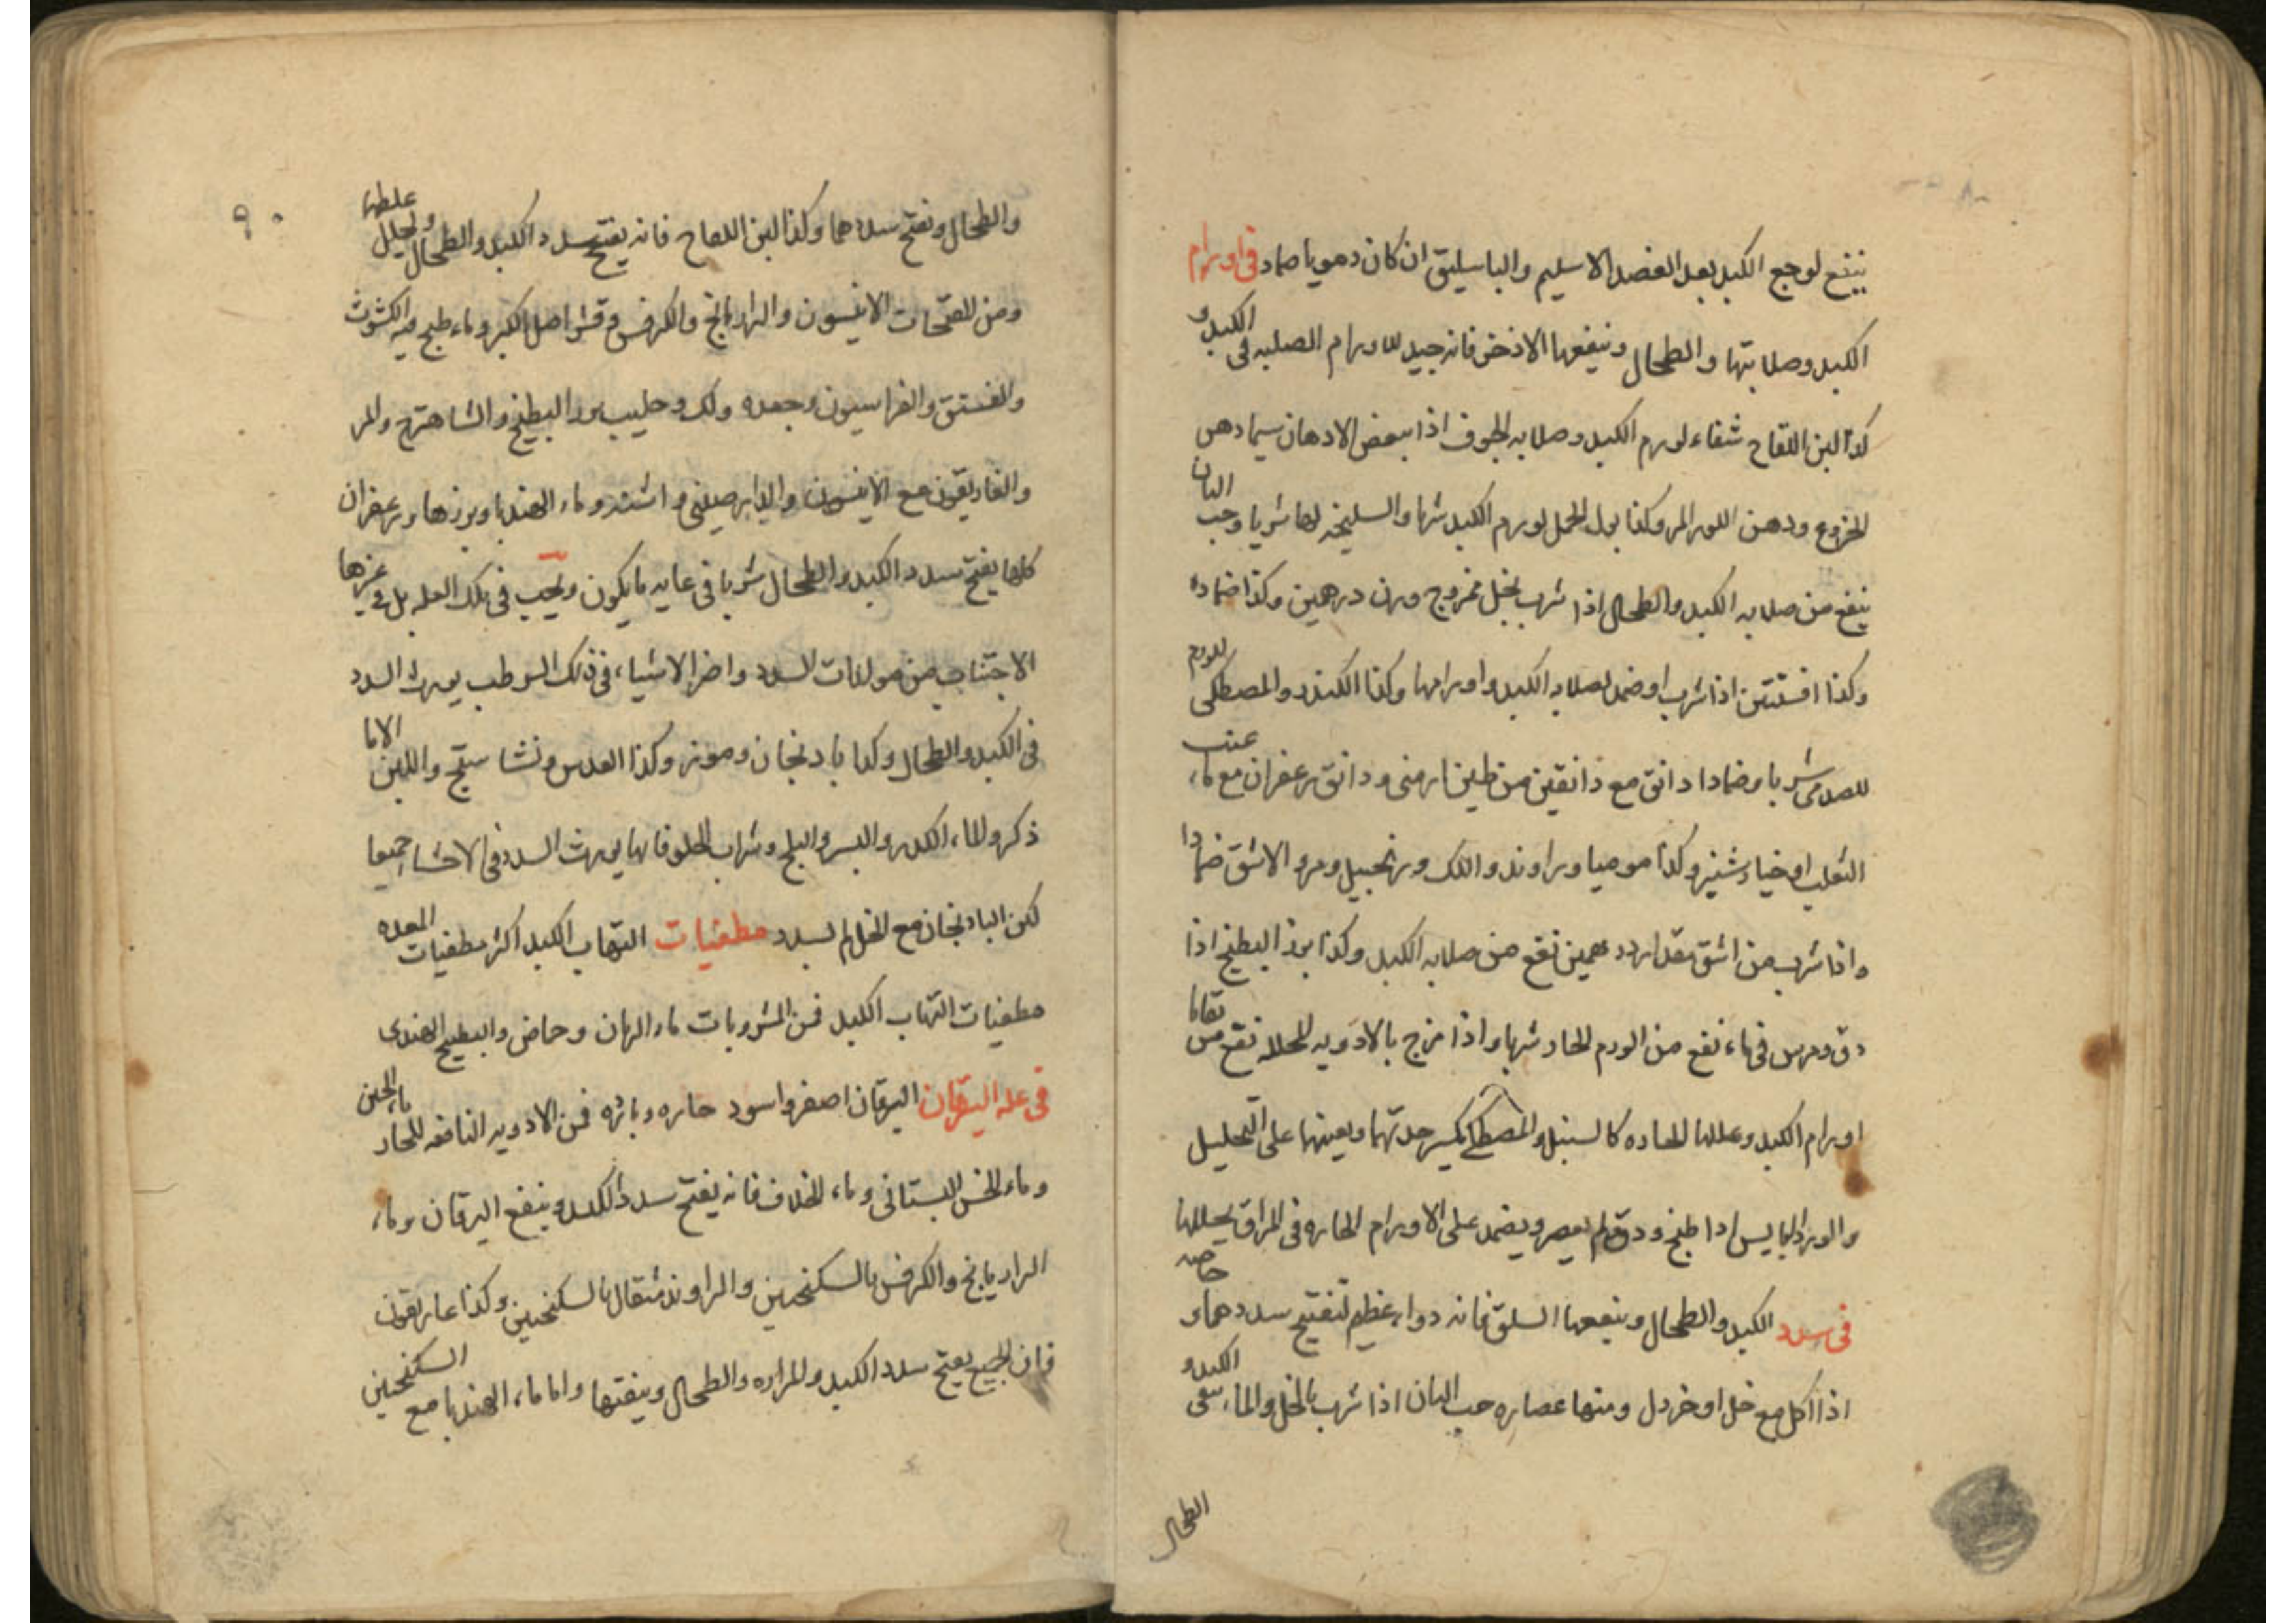 ينفع لوجع الكبد بعد الفصد الاسيلم والباسليق ان كان دمويا ضماد فى اورام
الكبد وصلابتها والطحال وينفعها الاذخر فانه جيد للاورام الصلبه فى الكبد و
كذا لبن اللقاح شفاء لورم الكبد وصلابه الجوف اذا ببعض الادهان سيما دهن
الخروع ودهن اللوز المر وكذا بول الجمل لورم الكبد شربا والسليخه لها شربا وحب البان
ينفع من صلابه الكبد والطحال اذا شرب بخل ممزوج وزن درهمين وكذا ضماده
وكذا افسنتين اذا شرب او ضمد لصلابه الكبد واورامها وكذا الكندر والمصطكى للورم
شربا وضمادا دانق مع دانقين من طين ارمنى ودانق زعفران مع ماء عنب
الثعلب او خيار شنبر وكذا موميا وراوند واللك وزنجبيل ومرو الاشق ضمادا
واذا شرب من اشق مقدار درهمين نفع من صلابه الكبد وكذا بزر البطيخ اذا
دق ومرس فى ماء نفع من الورم الحار شربا واذا مزج بالادويه المحلله نفع من بقايا
اورام الكبد وعللها الحاده كالسنبل والمصطكى يكسر حدتهما ويعينها على التحليل
والورد اليابس اذا طبخ ودق لم يعصر ويضمد على الاورام الحاره فى المراق يحللها خاصه
فى سدد الكبد والطحال وينفعها السلق فانه دواء عظيم لتفتيح سددهما و
اذا اكل مع خل او خردل ومنها عصاره حب البان اذا شرب بالخل والماء ينقى الكبد و
الطحال
٩٠
والطحال ونفتح سددهما وكذا لبن اللقاح فانه يفتح سدد الكبد والطحال ويحلل غلظها
ومن المفتحات الانيسون والرازيانج والكرفس وقشر اصل الكبر وماء طبخ فيه الكشوث
والفستق والفراسيون وجعده ولك وحليب بزر البطيخ والشاهترج والمر
والغاريقون مع الانيسون والدارصينى واشنه وماء الهندبا وبزرها وزعفران
كلها يفتح سدد الكبد والطحال شربا فى غايه ما يكون ويجب فى تلك العله بل فى غيرها
الاجتناب من مولدات السدد واضر الاشياء فى ذلك الرطب يورث السدد
فى الكبد والطحال وكذا بادنجان وموز وكذا العدس ونشاستج واللبن الا ما
ذكر والماء الكدر والبسر والبلح وشراب الحلو فانها يورث السدد فى الاحشاء جميعا
لكن البادنجان مع الخل لم يسدد مطفيات التهاب الكبد اكثر مطفيات المعده
مطفيات التهاب الكبد فمن المشروبات ماء الرمان وحماض والبطيخ الهندى
فى علة اليرقان اليرقان اصفر واسود حاره وبارده فمن الادويه النافعه للحار ماء الجبن
وماء الخس البستانى وماء الخلاف فانه يفتح سدد الكبد وينفع اليرقان وماء
الرازيانج والكرفس بالسكنجبين والراوند مثقال بالسكنجبين وكذا غاريقون
فان الجميع يفتح سدد الكبد والمراره والطحال وينقيها واما ماء الهندبا مع السكنجبين